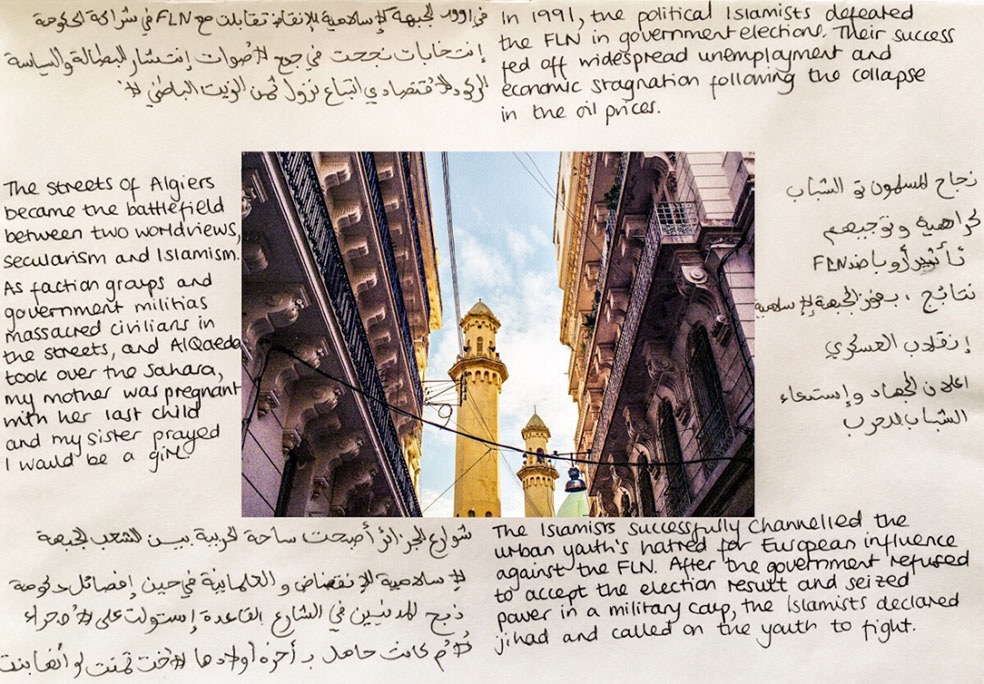 في الجبهة الإسلامية للإنقاذ تقابلت مع FLN في شراكة الحكومة
إنتخابات نجحت في جمع إنتشار البطالة والسياسة
نزول ثمن
In 1991, the political Islamists defeated
the FLN in government elections. Their success
fed off widespread unemployment and
economic stagnation following the collapse
in the oil prices.
The streets of Algiers
became the battlefield
between two worldviews,
secularism and Islamism.
As faction groups and
government militias
massacred civilians in
the streets, and AlQaeda
took over the Sahara,
my mother was pregnant
with her last child
and my sister prayed
I would be a girl.
نجاح المسلمون في الشباب
كراهية و توجيههم
تأثير أوروبا ضد FLN
نتائج ، بفوز الجبهة الإسلامية
إنقلاب العسكري
اعلان الجهاد وإستدعاء
الشباب للحرب
شوارع الجزائر أصبحت ساحة لحربية بين الشعب لجبهة
و العلمانية في حين
ذبح المدنيين في الشارع القاعدة إستولت على
كانت حامل بـ أولادها تمنت لو بنت
The Islamists successfully channelled the
urban youth's hatred for European influence
against the FLN. After the government refused
to accept the election result and seized
power in a military coup, the Islamists declared
jihad and called on the youth to fight.